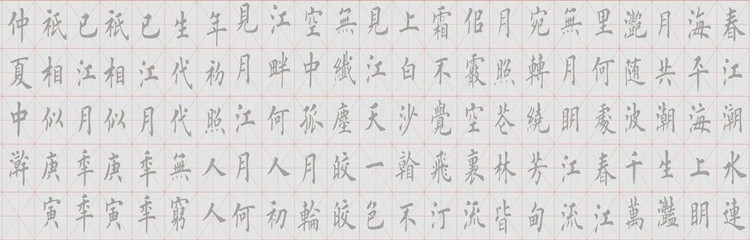 春江潮水連
海平海上明
月共潮生灩
灩随波千萬
里何處春江
無月明江流
宛轉繞芳甸
月照花林皆
佀霰空裏流
霜不覺飛汀
上白沙看不
見江天一色
無纖塵皎皎
空中孤月輪
江畔何人初
見月江月何
年初照人人
生代代無窮
已江月秊秊
祇相似庚寅
已江月秊秊
祇相似庚寅
仲夏中澣